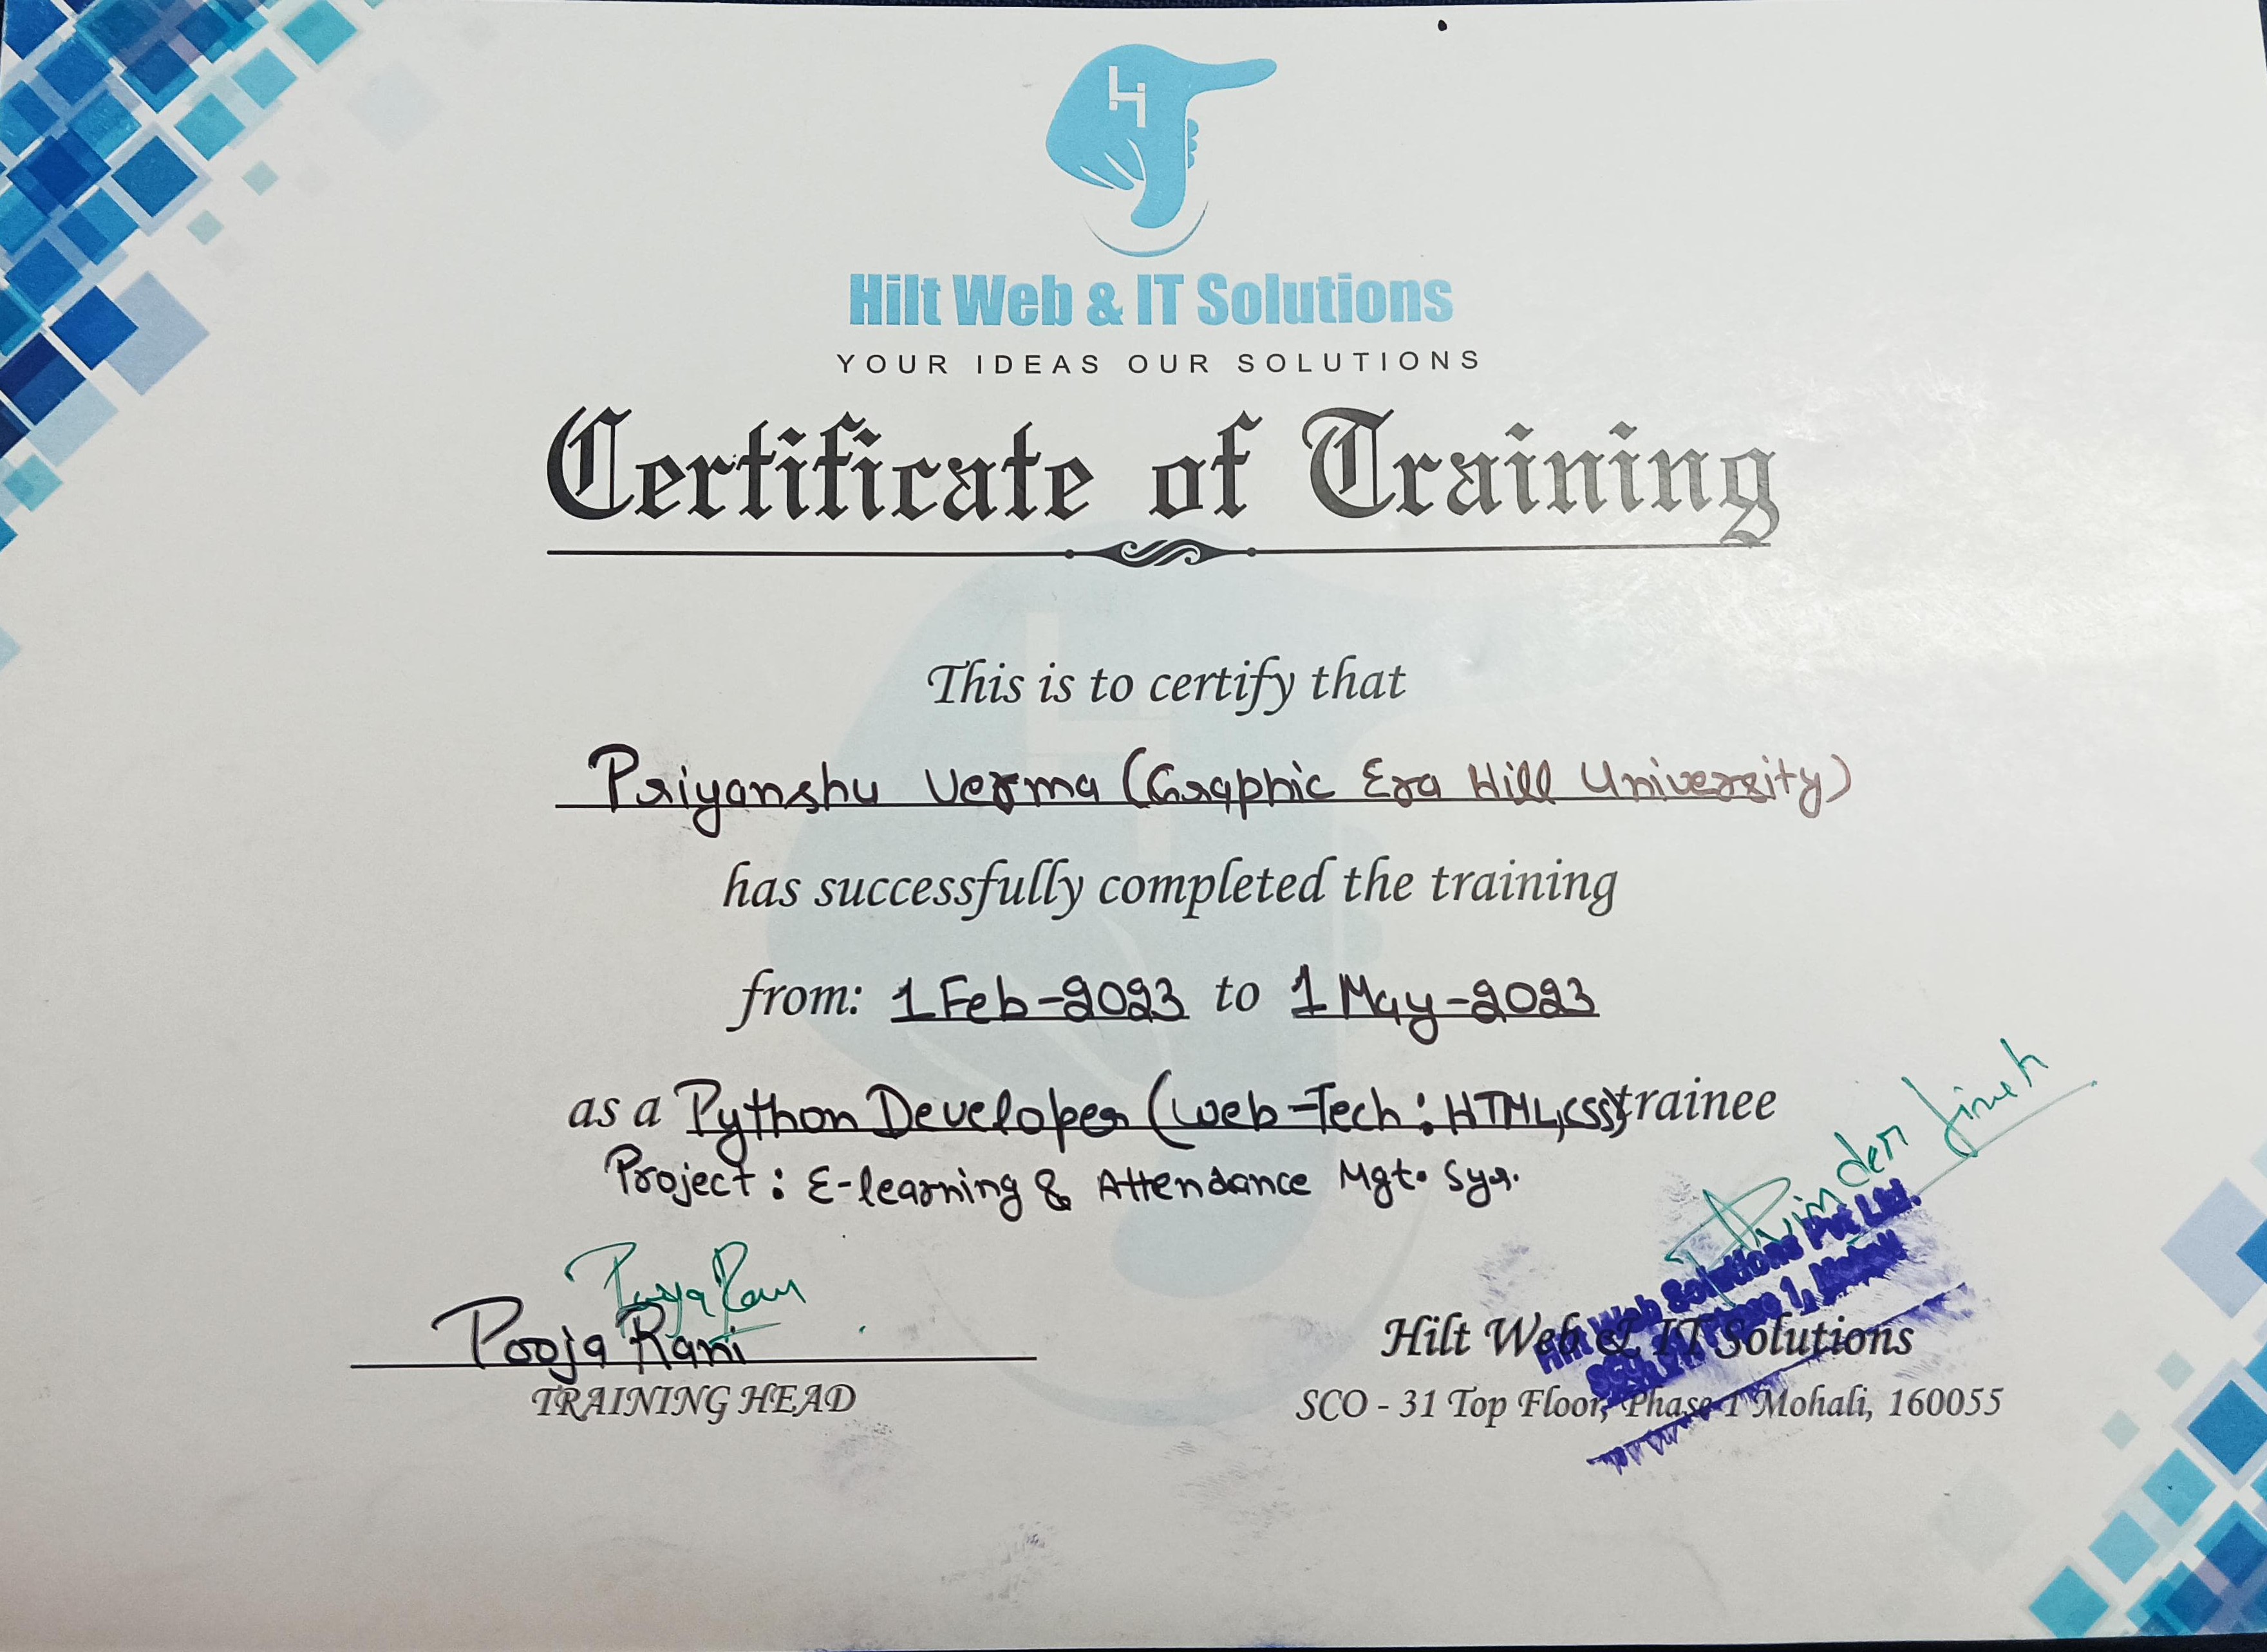 Hilt Web & IT Solutions
YOUR IDEAS OUR SOLUTIONS
Certificate of Training
This is to certify that
Priyanshu Verma (Graphic Era Hill University)
has successfully completed the training
from: 1 Feb-2023 to 1 May-2023
as a Python Developer (Web-Tech: HTML,CSS) trainee
Project: E-learning & Attendance Mgt. Sys.
Pooja Rani
Pooja Rani
TRAINING HEAD
Hilt Web Solutions Pvt Ltd.
Hilt Web & IT Solutions
SCO - 31 Top Floor, Phase-1 Mohali, 160055